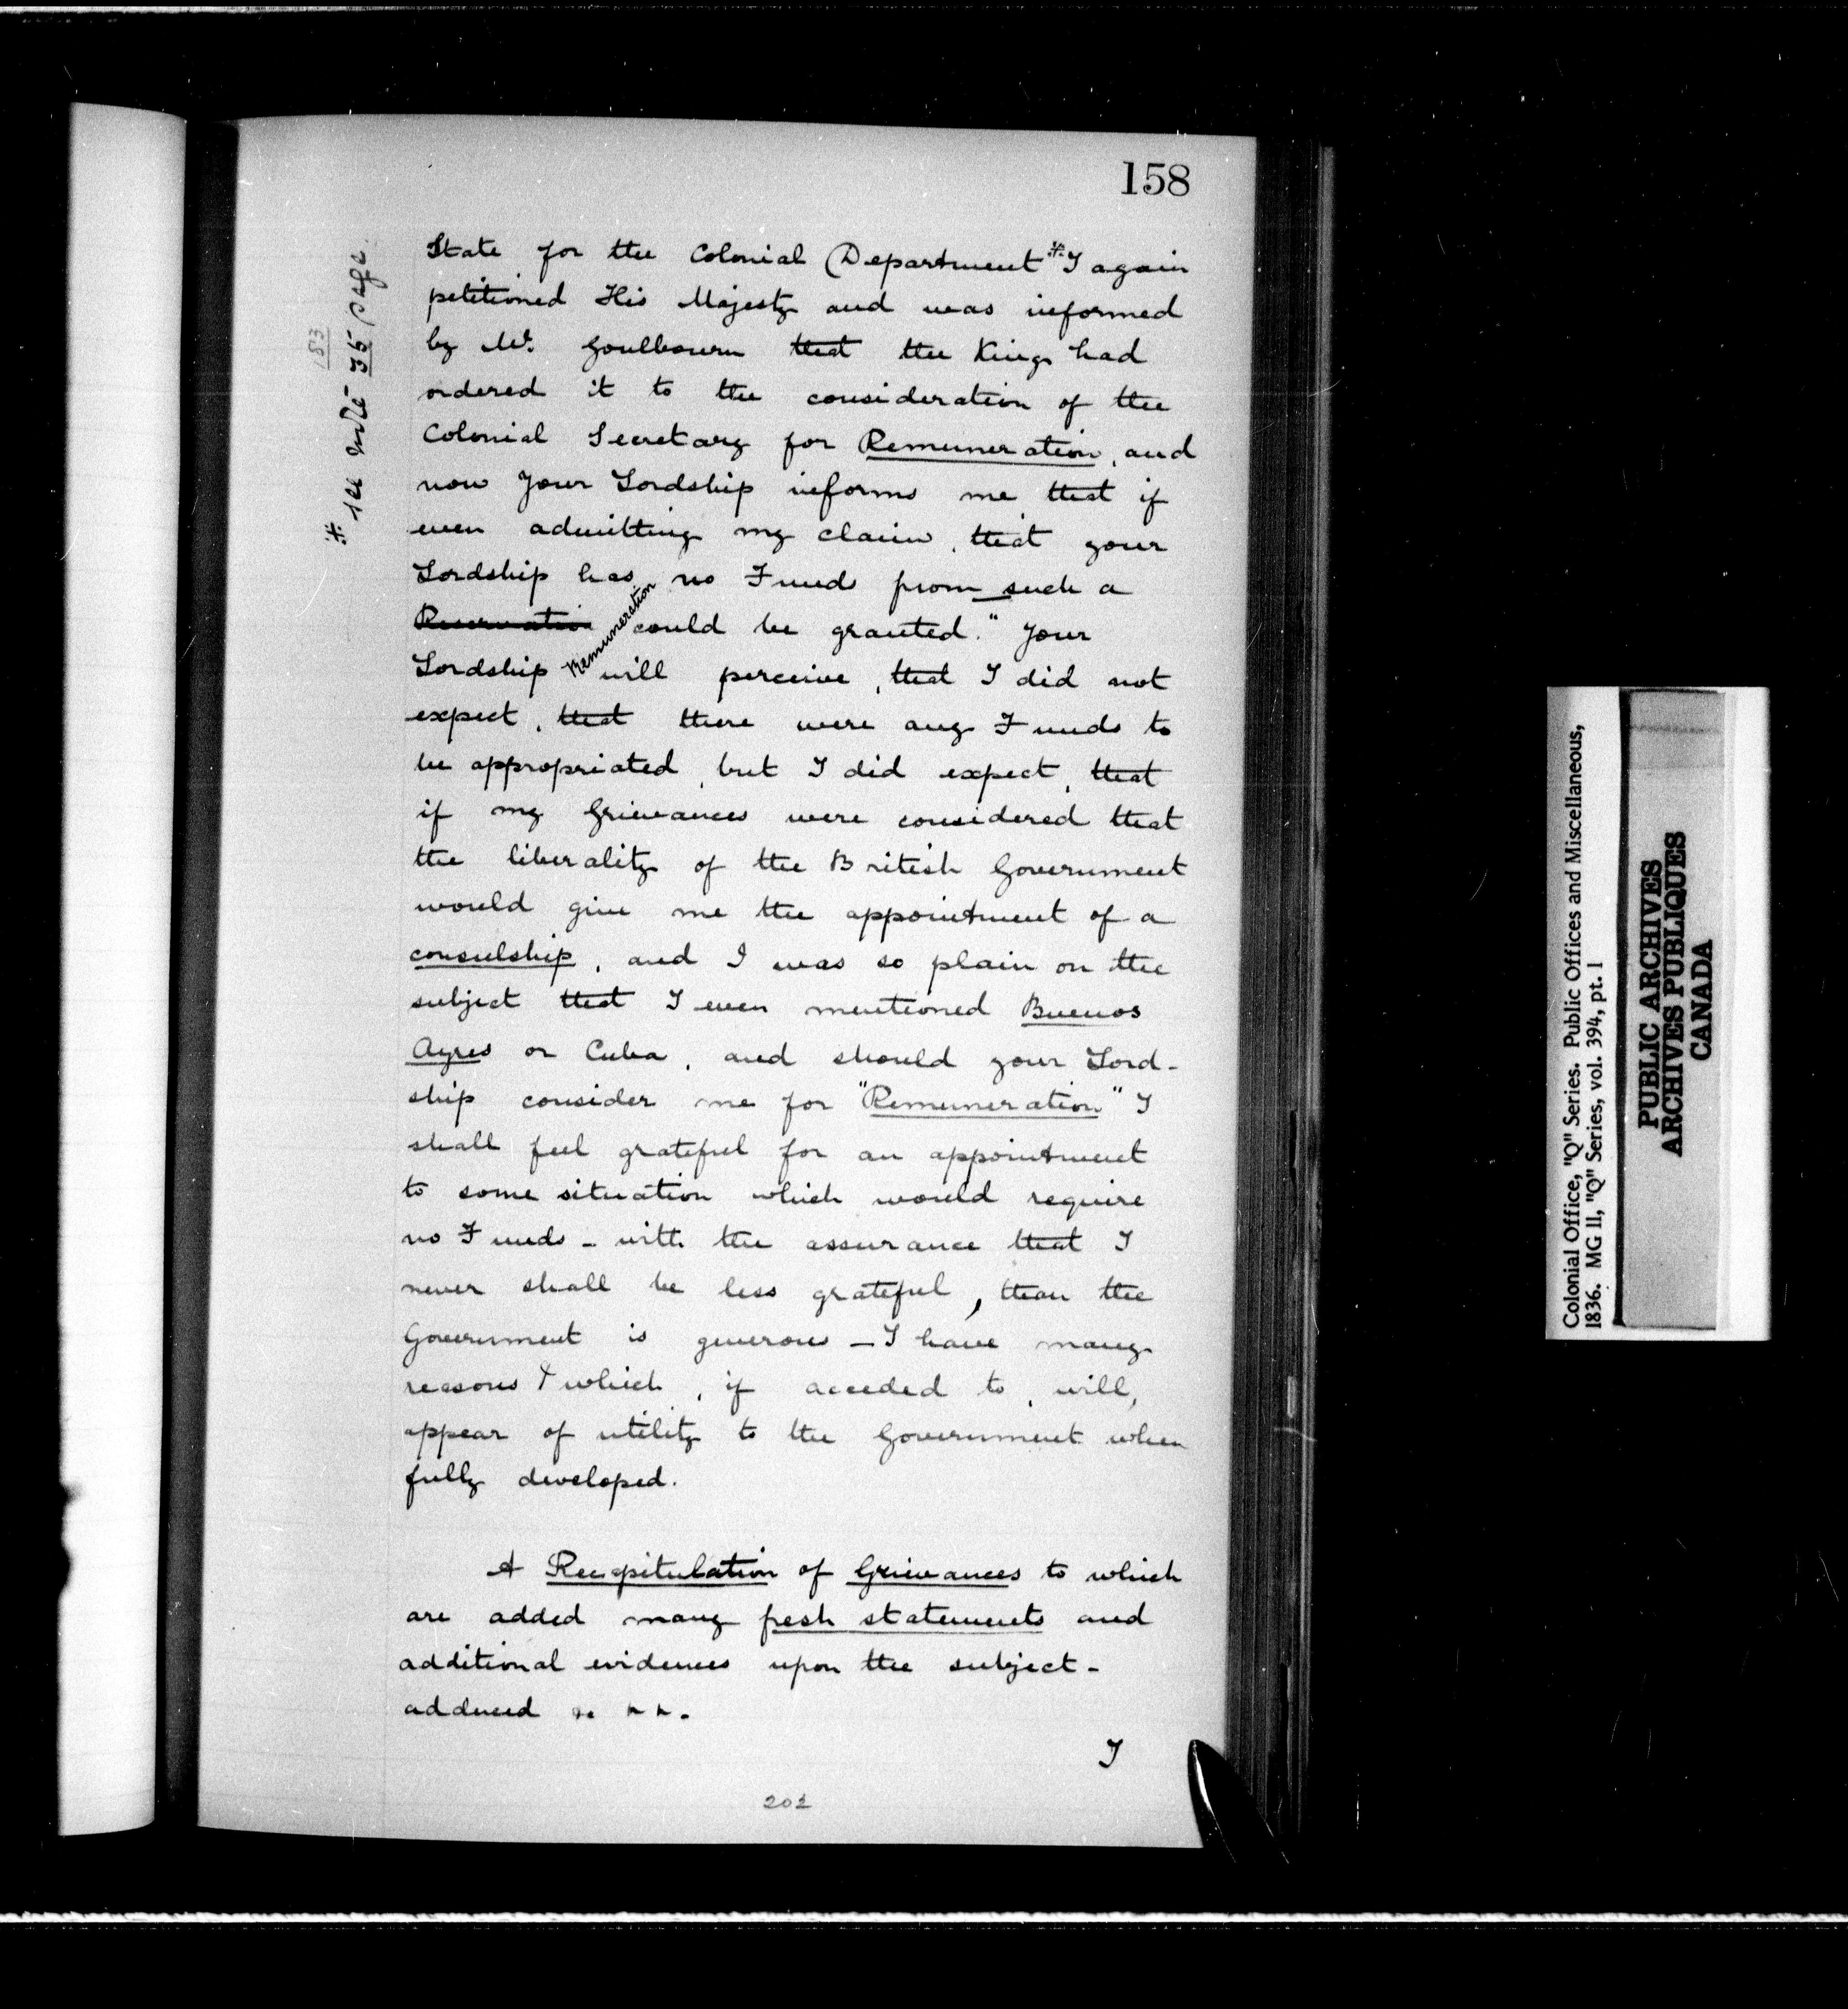 158
State for the Colonial Department * I again
petitioned His Majesty and was informed
by Mr. Goulbourn that the King had
ordered it to the consideration of the
Colonial Secretary for Remuneration, and
now your Lordship informs me that if
even admitting my claim, that your
Lordship has no Funds from such a
Remuneration could be granted." Your
Lordship will perceive, that I did not
expect, that there were any Funds to
be appropriated, but I did expect, that
if my Grievances were considered that
the liberality of the British Government
would give me the appointment of a
consulship, and I was so plain on the
subject that I even mentioned Buenos
Ayres or Cuba, and should your Lord-
ship consider me for "Remuneration" I
shall feel grateful for an appointment
to some situation which would require
no Funds - with the assurance that I
never shall be less grateful, than the
Government is generous - I have many
reasons & which, if acceded to, will,
appear of utility to the Government when
fully developed.
A Recapitulation of Grievances to which
are added many fresh statements and
additional evidences upon the subject -
adduced
I
202
* see note 35 page
183
Colonial Office, "Q" Series. Public Offices and Miscellaneous,
1836. MG 11, "Q" Series, vol. 394, pt. 1
PUBLIC ARCHIVES
ARCHIVES PUBLIQUES
CANADA